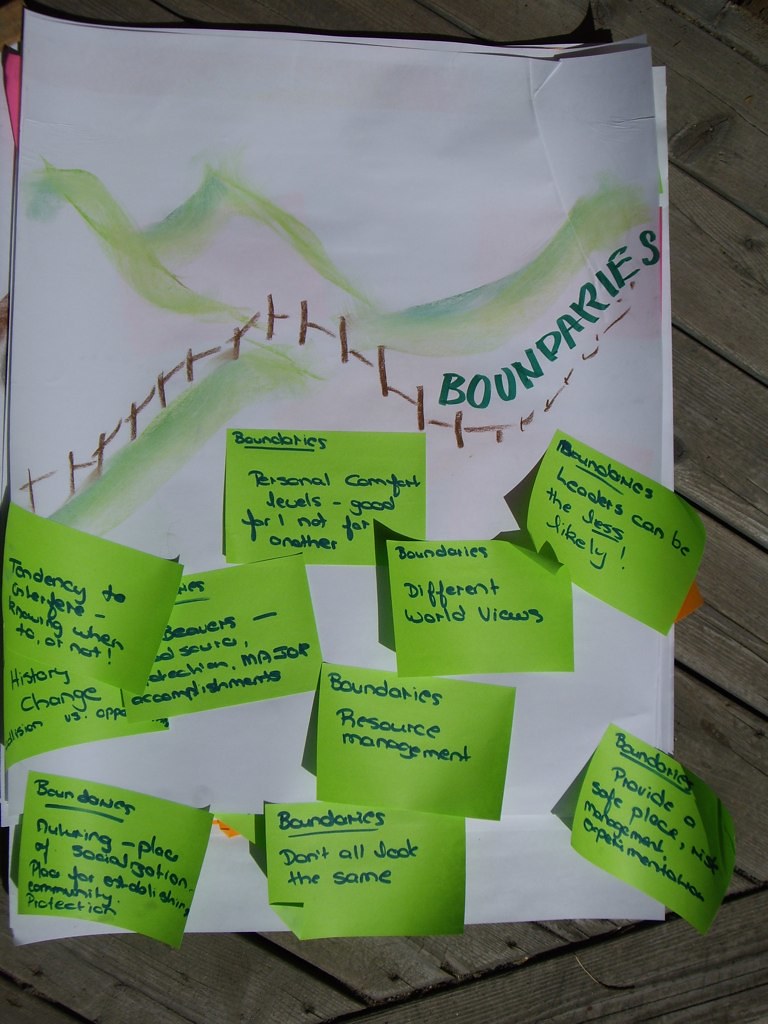 BOUNDARIES
Boundaries
Personal Comfort
levels - good
for 1 not for
another
Boundaries
Leaders can be
the less
likely!
Boundaries
Different
World Views
Tendency to
interfere -
knowing when
to, or not!
ies
Beavers -
MAJOR
accomplishments
History
Change
vs.
Boundaries
Resource
management
Boundaries
Provide a
safe place, risk
management,
experimentation
Boundaries
Nuturing - place
of socialization.
Place for establishing
community.
Protection
Boundaries
Don't all look
the same